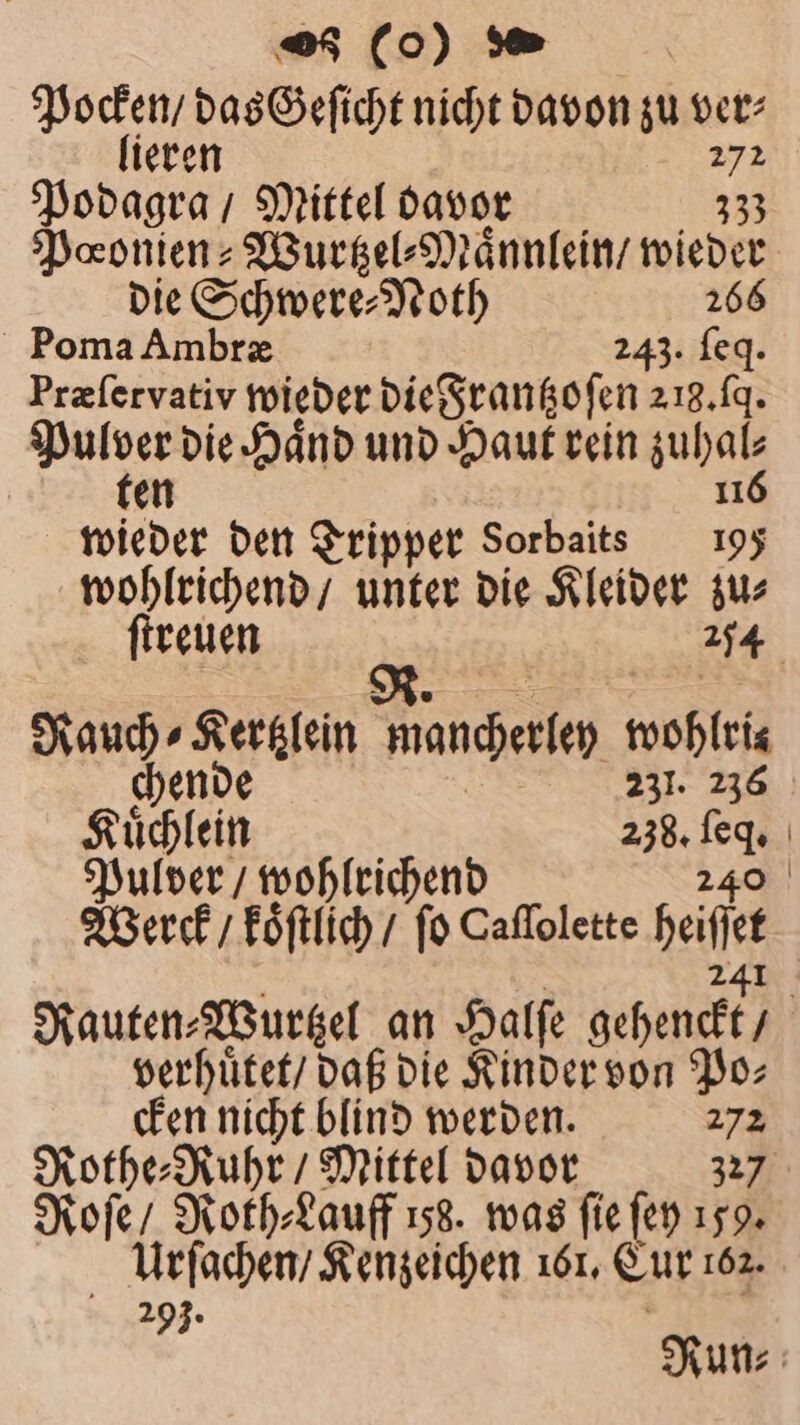 (0)
Pocken/ das Geſicht nicht davon zu ver⸗
lieren 272
Podagra / Mittel davor 333
Pœonien⸗Wurtzel⸗Maͤnnlein/ wieder
die Schwere⸗Noth 266
Poma Ambræ 243. ſeq.
Præſervativ wieder die Frantzoſen 218. ſq.
Pulver die Haͤnd und Haut rein zuhal⸗
ten 116
wieder den Tripper Sorbaits 195
wohlrichend/ unter die Kleider zu⸗
ſtreuen 254
R.
Rauch⸗Kertzlein mancherley wohlri⸗
chende 231. 236
Kuͤchlein 238. ſeq.
Pulver / wohlrichend 240
Werck / koͤſtlich / ſo Caſſolette heiſſet
241
Rauten⸗Wurtzel an Halſe gehenckt /
verhuͤtet/ daß die Kinder von Po⸗
cken nicht blind werden. 272
Rothe⸗Ruhr / Mittel davor 327
Roſe / Roth⸗Lauff 158. was ſie ſey 159.
Urſachen/ Kenzeichen 161. Cur 162.
293.
Run⸗